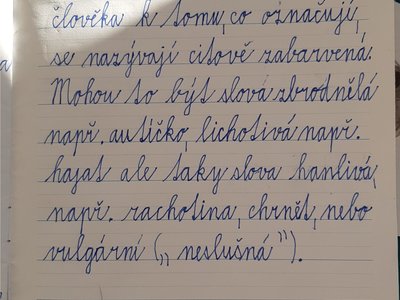 člověka k tomu, co označují,
se nazývají citově zabarvená.
Mohou to být slova zbrodnělá
např. autíčko, lichotivá např.
hajat ale taky slova hanlivá,
např. rachotina, chrnět, nebo
vulgární („neslušná").